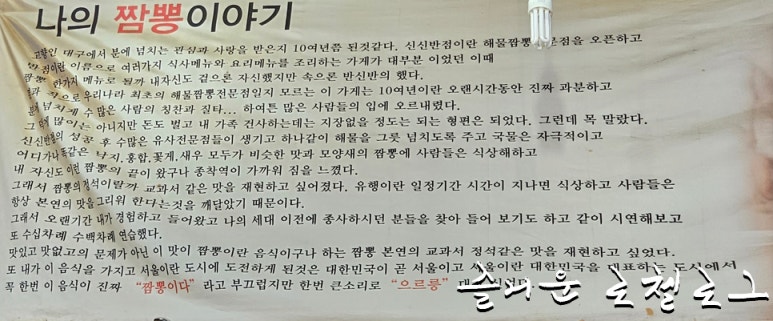 나의 짬뽕이야기
고향인 대구에서 분에 넘치는 관심과 사랑을 받은지 10여년쯤 된것같다. 신신반점이란 해물짬뽕 전문점을 오픈하고
반점이란 이름으로 여러가지 식사메뉴와 요리메뉴를 조리하는 가게가 대부분 이었던 이때
짬뽕 한가지 메뉴로 될까 내자신도 겉으론 자신했지만 속으론 반신반의 했다.
우리나라 최초의 해물짬뽕전문점일지 모르는 이 가게는 10여년이란 오랜시간동안 진짜 과분하고
분에 넘치게 수 많은 사람의 칭찬과 질타... 하여튼 많은 사람들의 입에 오르내렸다.
그 많이는 아니지만 돈도 벌고 내 가족 건사하는데는 지장없을 정도는 되는 형편은 되었다. 그런데 목 말랐다.
신신반점의 성공 후 수많은 유사전문점들이 생기고 하나같이 해물을 그릇 넘치도록 주고 국물은 자극적이고
어디가나 똑같은 낙지, 홍합, 꽃게, 새우 모두가 비슷한 맛과 모양새의 짬뽕에 사람들은 식상해하고
내 자신도 이런 짬뽕의 끝이 왔구나 종착역이 가까워 짐을 느꼈다.
그래서 짬뽕의 정석이랄까 교과서 같은 맛을 재현하고 싶어졌다. 유행이란 일정기간 시간이 지나면 식상하고 사람들은
항상 본연의 맛을 그리워 한다는것을 깨달았기 때문이다.
그래서 오랜기간 내가 경험하고 들어왔고 나의 세대 이전에 종사하시던 분들을 찾아 들어 보기도 하고 같이 시연해보고
또 수십차례 수백차례 연습했다.
맛있고 맛없고의 문제가 아닌 이 맛이 짬뽕이란 음식이구나 하는 짬뽕 본연의 교과서 정석같은 맛을 재현하고 싶었다.
또 내가 이 음식을 가지고 서울이란 도시에 도전하게 된것은 대한민국이 곧 서울이고 서울이란 대한민국을 대표하는 도시에서
꼭 한번 이 음식이 진짜 "짬뽕이다" 라고 부끄럽지만 한번 큰소리로 "으르릉"
슬기운 로젤로그